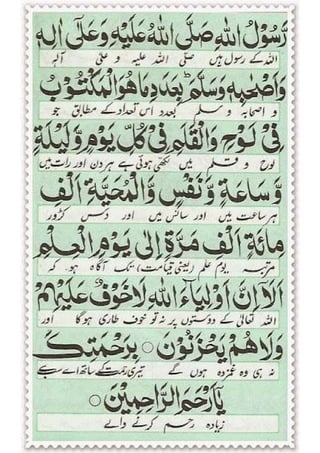 رَّسُوْلُ اللهِ صَلَّى اللهُ عَلَيْهِ وَعَلٰى اٰلِهٖ
اللہ کے رسول ہیں صلی اللہ علیہ و علی آلہ
وَاَصْحٰبِهٖ وَسَلَّمَ بِعَدَدِ مَا هُوَ الْمَكْتُوْبُ
و اصحابہ و سلم بعدد اس تعداد کے مطابق جو
فِيْ لَوْحٍ وَالْقَلَمِ فِيْ كُلِّ يَوْمٍ وَّلَيْلَةٍ
لوح و قلم میں لکھی ہوئی ہے ہر دن اور رات میں
وَّسَاعَةٍ وَّنَفَسٍ وَّالْمَحْيَّةِ اَلْفِ
ہر ساعت میں اور سانس میں اور دس کڑور
مِائَةِ اَلْفِ مَرَّةٍ اِلٰى يَوْمِ الْعِلْمِ
مرتبہ یوم علم (یعنی قیامت) تک آگاہ ہو کہ
اَلَا اِنَّ اَوْلِيَاءَ اللهِ لَا خَوْفٌ عَلَيْهِمْ
اللہ تعالیٰ کے دوستوں پر نہ تو خوف طاری ہوگا اور
وَلَا هُمْ يَحْزَنُوْنَ ○ بِرَحْمَتِكَ
نہ ہی وہ غمزدہ ہوں گے تیری رحمت کے ساتھ اے سب سے
يَآ اَرْحَمَ الرَّاحِمِيْنَ ○
زیادہ رحم کرنے والے